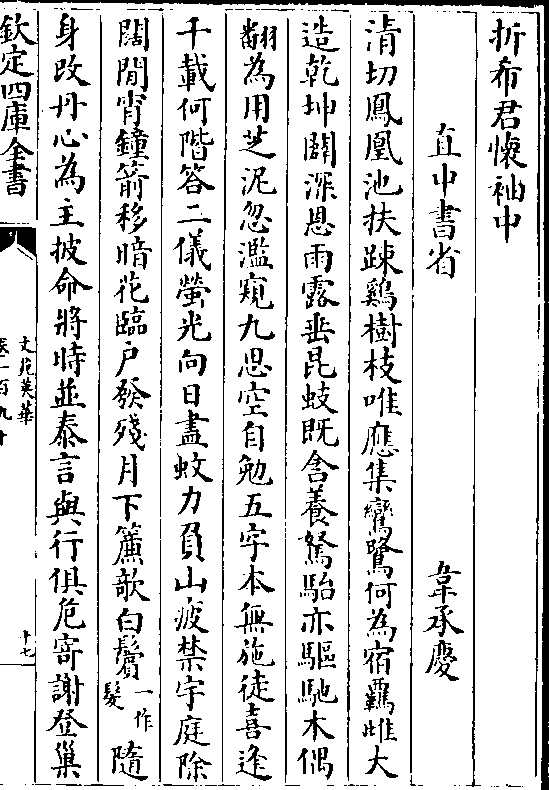 折布君懷袖中
直中書省　韋承慶
清切鳳凰池扶踈鷄樹枝唯應集鸞鷺何為宿覊雌大
造乾坤闢深恩雨露垂昆蚑既含養駑駘亦驅馳木偶
翻為用芝泥忽濫窺九思空自勉五字本無施徒喜逢
千載何階答二儀螢光向日盡蚊力負山疲禁宇庭除
闊閒宵鐘箭移暗花臨戶發殘月下簾欹白鬢一作髮隨
身改丹心為主披命將時並泰言與行俱危寄謝登巢
欽定四庫全書
文苑英華
卷一百九十
十七